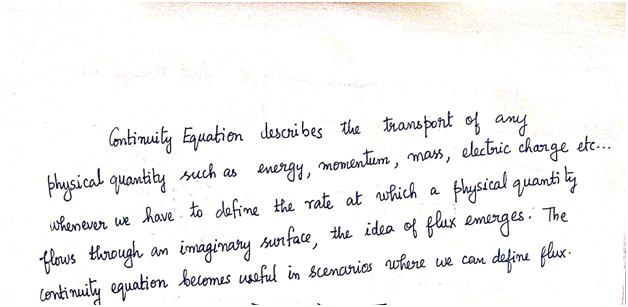 Continuity Equation describes the transport of any
physical quantity such as energy, momentum, mass, electric charge etc...
whenever we have to define the rate at which a physical quantity
flows through an imaginary surface, the idea of flux emerges. The
continuity equation becomes useful in scenarios where we can define flux.